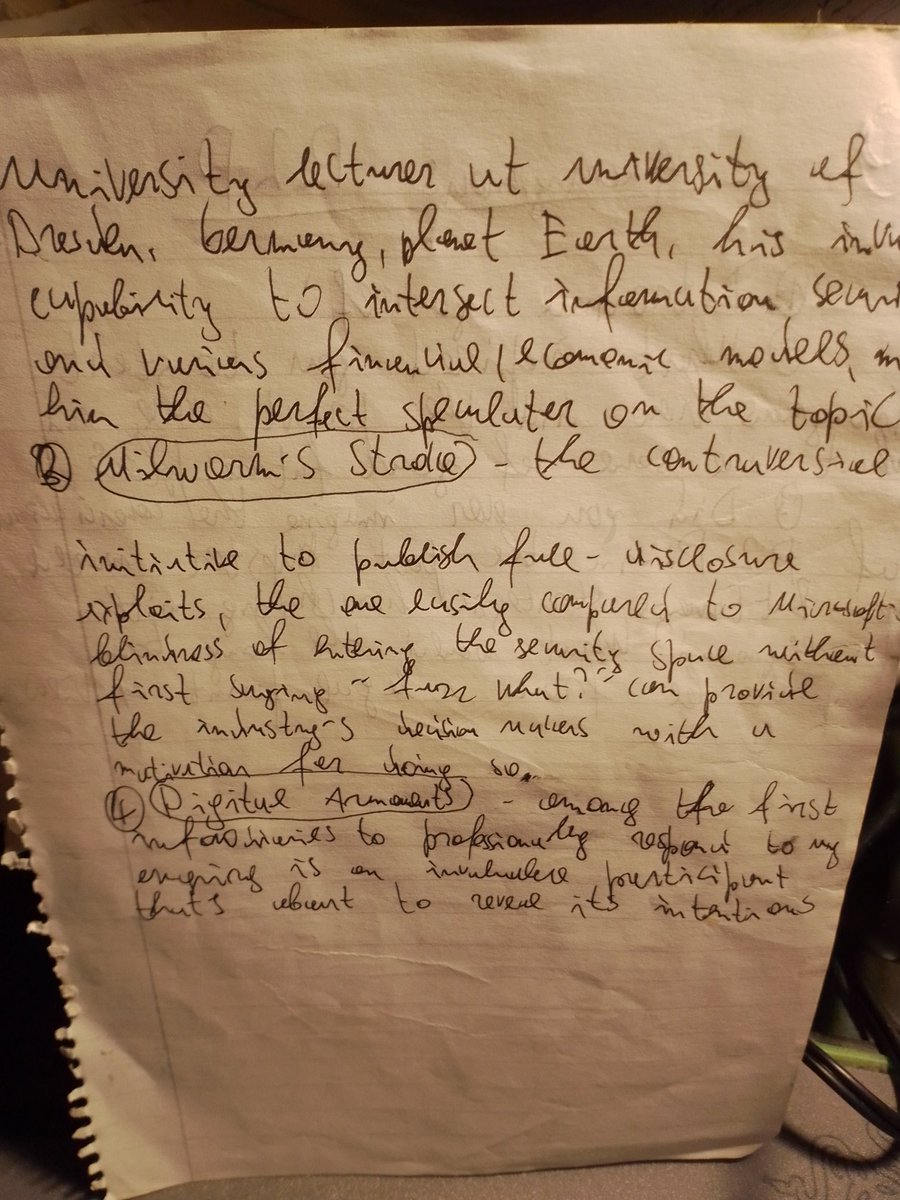 University lecturer at university of
Dresden, Germany, planet Earth, his
capability to intersect information
and various financial/economic models,
him the perfect speculator on the topic
③ Milw0rm's Str0ke - the contraversial
initiative to publish full-disclosure
exploits, the one easily compared to Microsoft
blindness of entering the security space without
first saying "fuzz what?" can provide
the industry's decision makers with a
motivation for doing so.
④ Digital Armaments - among the first
to professionally respond to my
enquiry is an participant
that's about to reveal its intentions